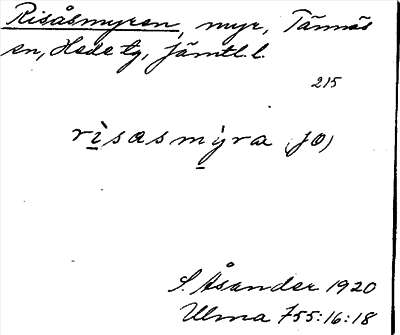 Risåsmyren, myr, Tännäs
sn, Hede tg, Jämtl. l.
215
rìsasmỳra (JO)
S. Åsander 1920
Ulma 755:16:18